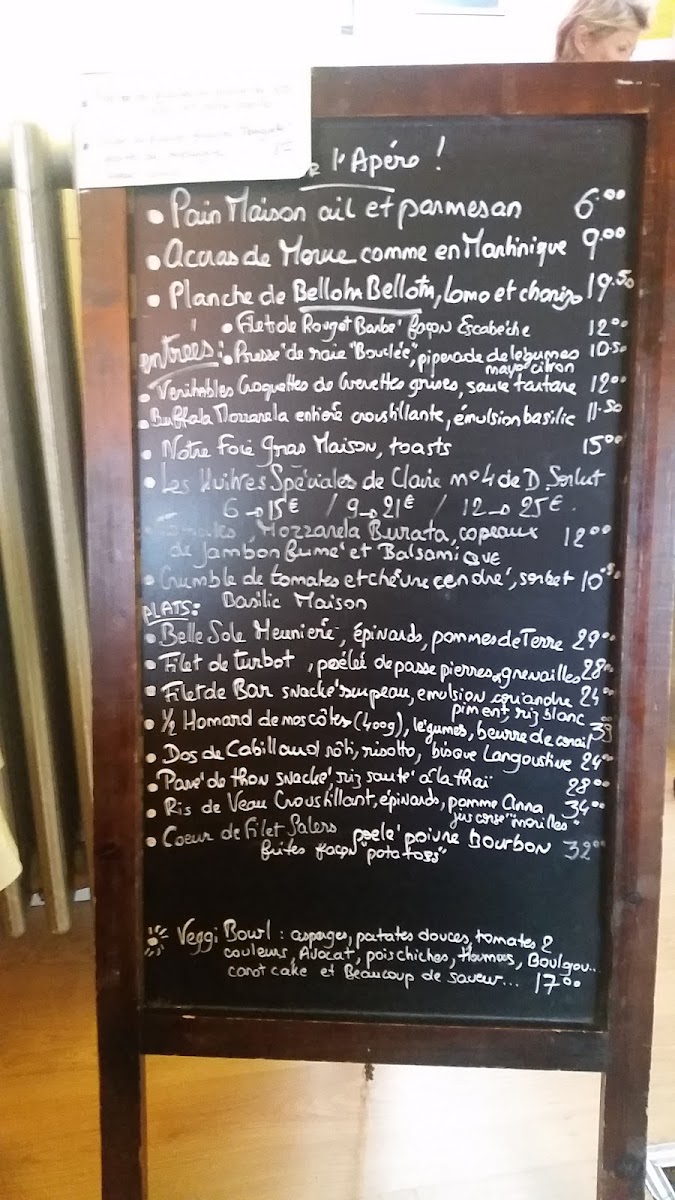 l'Apéro !
• Pain Maison ail et parmesan 6.00
• Accras de Morue comme en Martinique 9.00
• Planche de Bellota Bellota, lomo et chorizo 19.50
• Filet de Rouget Barbé façon Escabèche 12.00
entrées: • Pressé de raie "Bouclée", piperade de légumes 10.50
mayo citron
• Véritables Croquettes de Crevettes grises, sauce tartare 12.00
• Buffala Mozzarela entière croustillante, émulsion basilic 11.50
• Notre Foie gras Maison, toasts 15.00
• Les Huitres Spéciales de Claire n°4 de D. Sorlut
6 → 15€ / 9 → 21€ / 12 → 25€.
Tomates, Mozzarela Burata, copeaux 12.00
de Jambon fumé et Balsamique
• Crumble de tomates et chèvre cendré, sorbet 10.50
Basilic Maison
PLATS:
• Belle Sole Meunière, épinards, pommes de Terre 29.00
• Filet de turbot, poêlée de passe pierres, grenailles 28.00
• Filet de Bar snacké sur peau, emulsion coriandre 24.00
piment, riz blanc
• 1/2 Homard de nos côtes (400g), légumes, beurre de corail 39
• Dos de Cabillaud rôti, risotto, bisque Langoustine 24.00
• Pavé de thon snacké riz sauté à la thaï 28.00
• Ris de Veau Croustillant, épinards, pomme Anna 34.00
jus corsé "morilles"
• Coeur de Filet Salers poelé poivre Bourbon 32.00
frites façon "potatoes"
Veggi Bowl : asperges, patates douces, tomates 2
couleurs, Avocat, pois chiches, Houmous, Boulgou...
carot cake et Beaucoup de saveur... 17.00